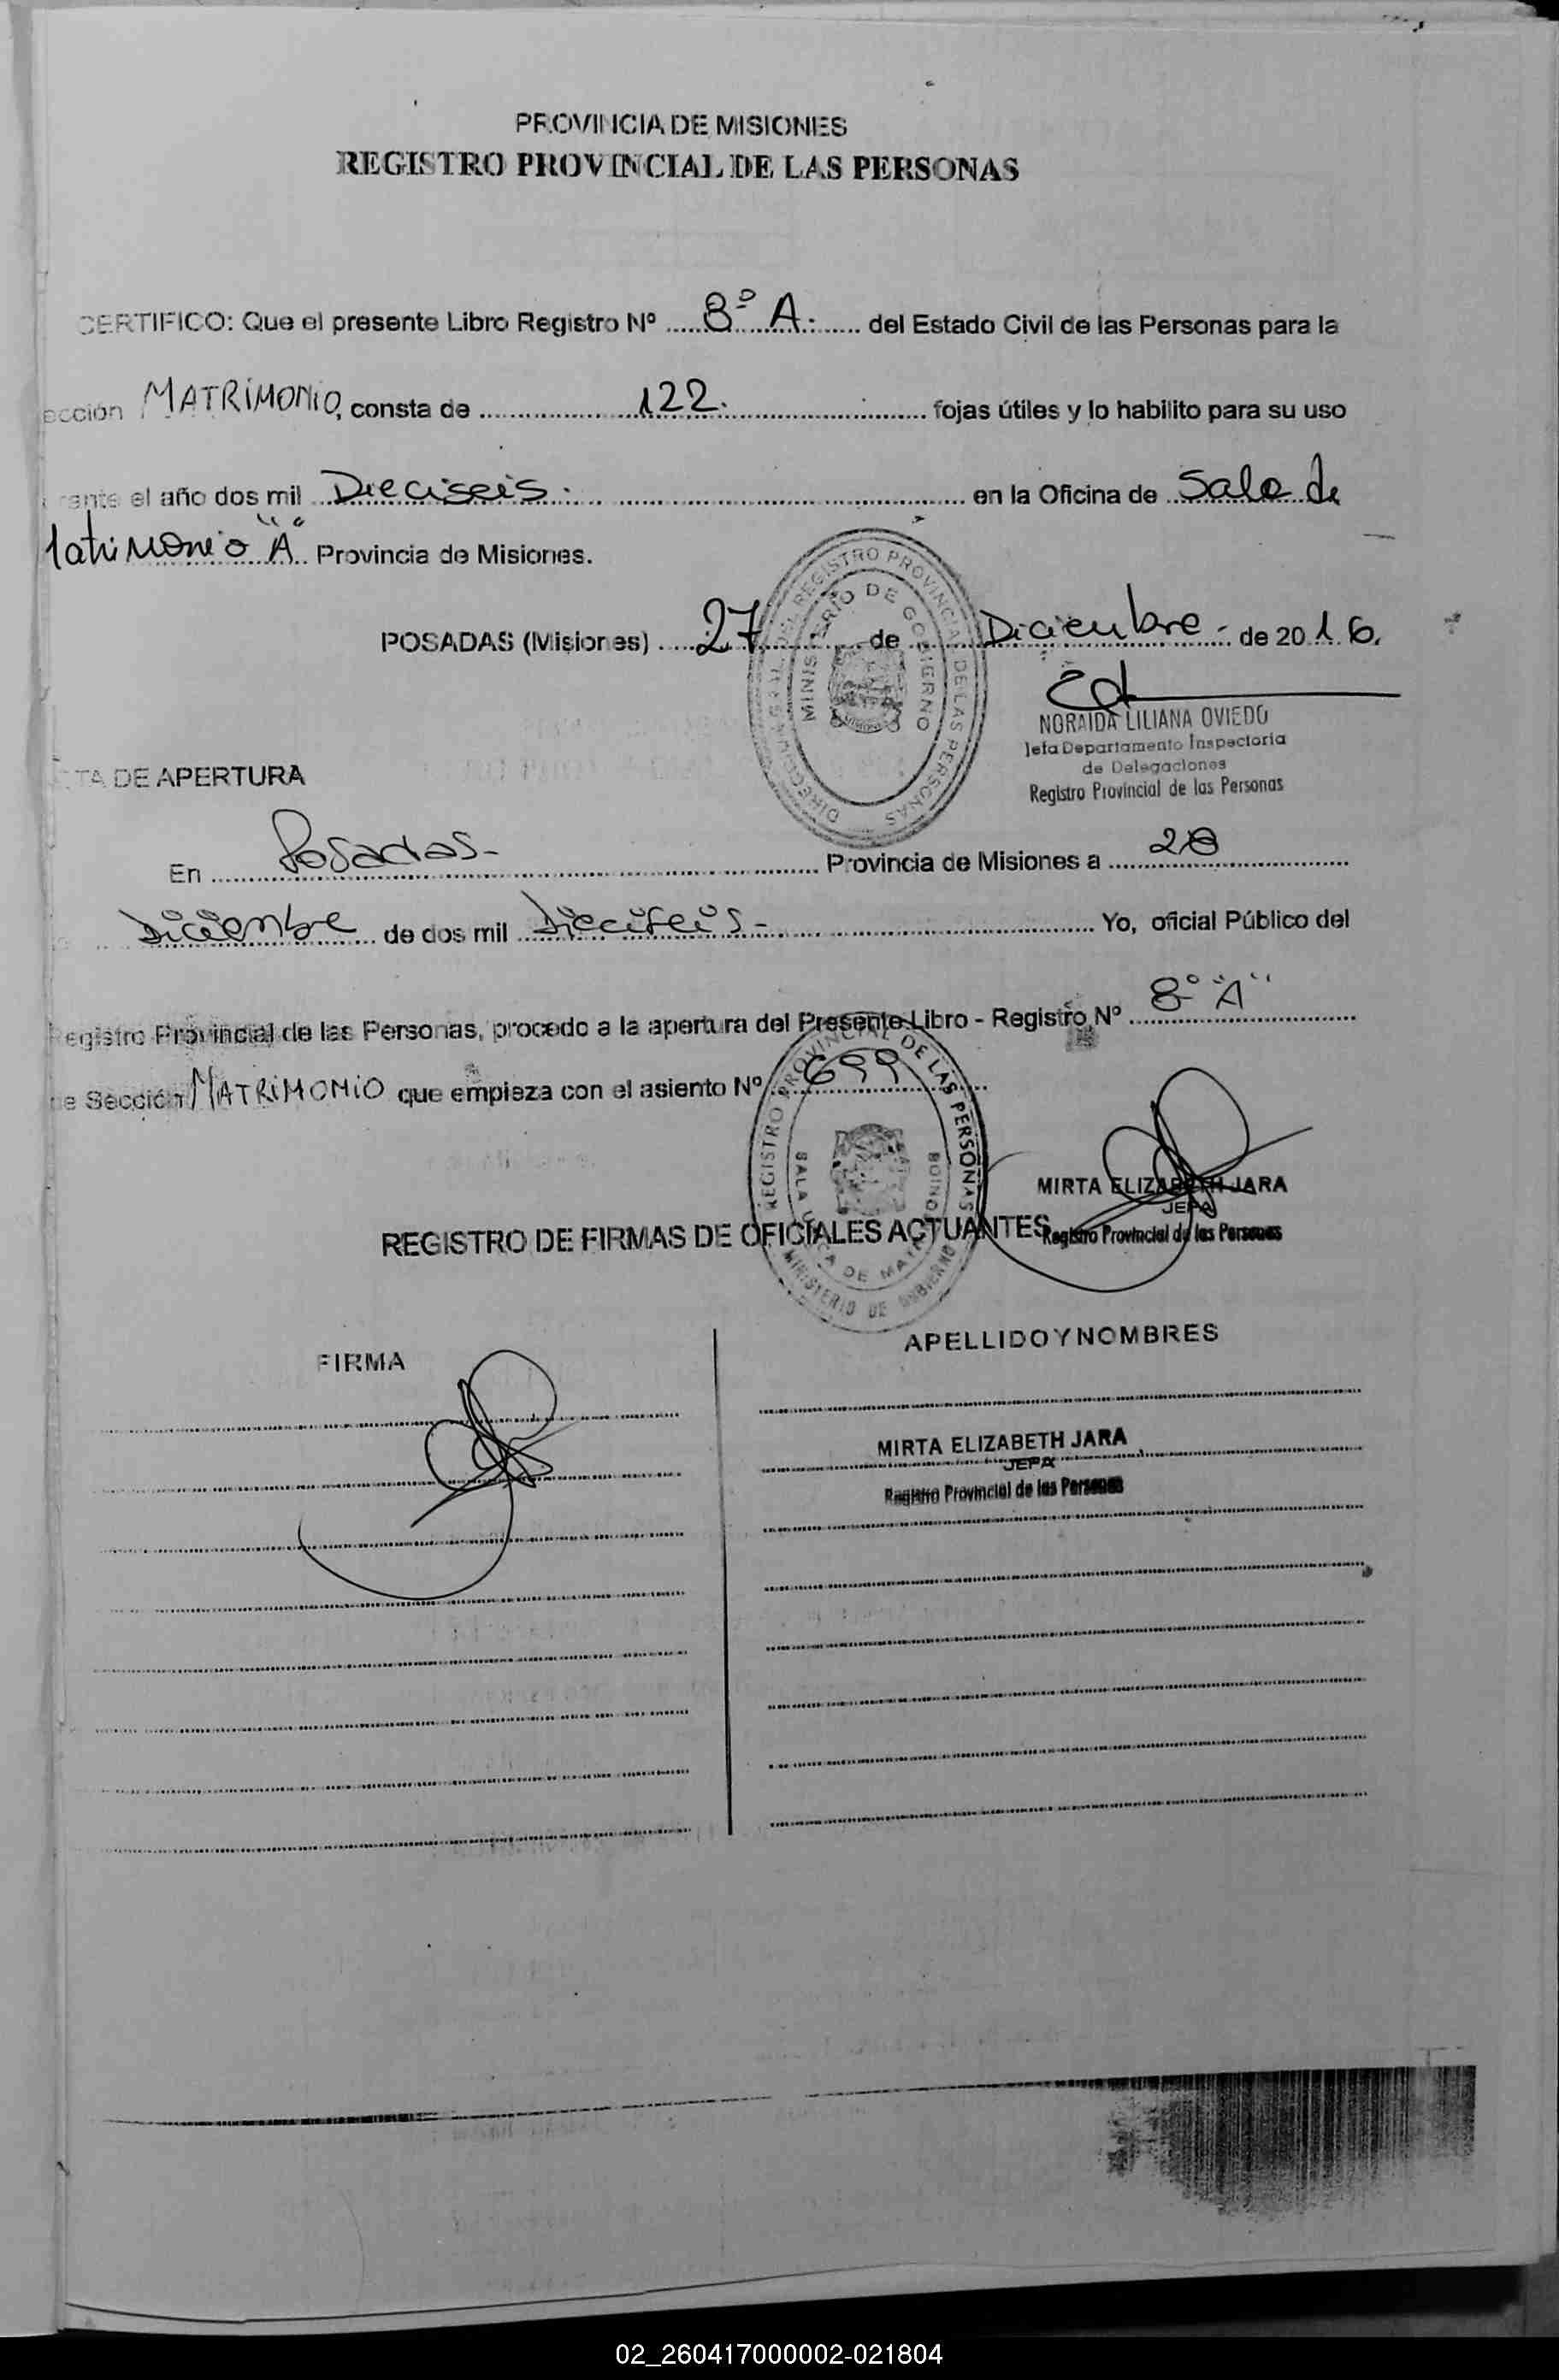 PROVINCIA DE MISIONES
REGISTRO PROVINCIAL DE LAS PERSONAS
CERTIFICO: Que el presente Libro Registro Nº 8º A. del Estado Civil de las Personas para la
ección MATRIMONIO, consta de 122. fojas útiles y lo habilito para su uso
rante el año dos mil Dieciseis. en la Oficina de Sala de
Matrimonio "A" Provincia de Misiones.
POSADAS (Misiones) 27 de Diciembre - de 2016.
NORAIDA LILIANA OVIEDO
Jefa Departamento Inspectoria
de Delegaciones
Registro Provincial de las Personas
DIRECCION GRAL. DEL REGISTRO PROVINCIAL DE LAS PERSONAS
MINISTERIO DE GOBIERNO
TA DE APERTURA
En Posadas- Provincia de Misiones a 28
Diciembre de dos mil Dieciseis- Yo, oficial Público del
Registro Provincial de las Personas, procedo a la apertura del Presente Libro - Registro Nº 8º "A"
e Sección MATRIMONIO que empieza con el asiento Nº 699
REGISTRO PROVINCIAL DE LAS PERSONAS
MINISTERIO DE GOBIERNO
MIRTA ELIZABETH JARA
JEFA
Registro Provincial de las Personas
REGISTRO DE FIRMAS DE OFICIALES ACTUANTES
FIRMA
APELLIDO Y NOMBRES
MIRTA ELIZABETH JARA
JEFA
Registro Provincial de las Personas
02_260417000002-021804